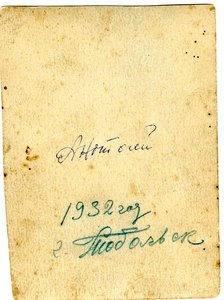 Анатолий
1932 год.
г. Тобольск